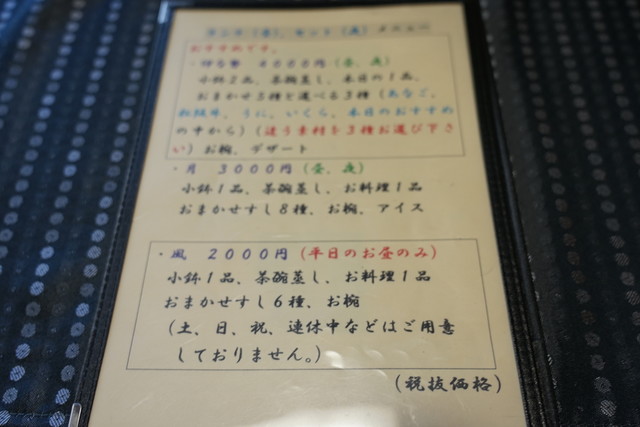 ランチ（昼）、セット（夜）メニュー
おすすめです。
４０００円（昼、夜）
小鉢２品、茶碗蒸し、本日の１品、
おまかせ５種と選べる３種（あなご、
松阪牛、うに、いくら、本日のおすすめ
の中から）（違う素材を３種お選び下さ
い）お椀、デザート
・月 ３０００円（昼、夜）
小鉢１品、茶碗蒸し、お料理１品
おまかせすし８種、お椀、アイス
・風 ２０００円（平日のお昼のみ）
小鉢１品、茶碗蒸し、お料理１品
おまかせすし６種、お椀
（土、日、祝、連休中などはご用意
しておりません。）
（税抜価格）